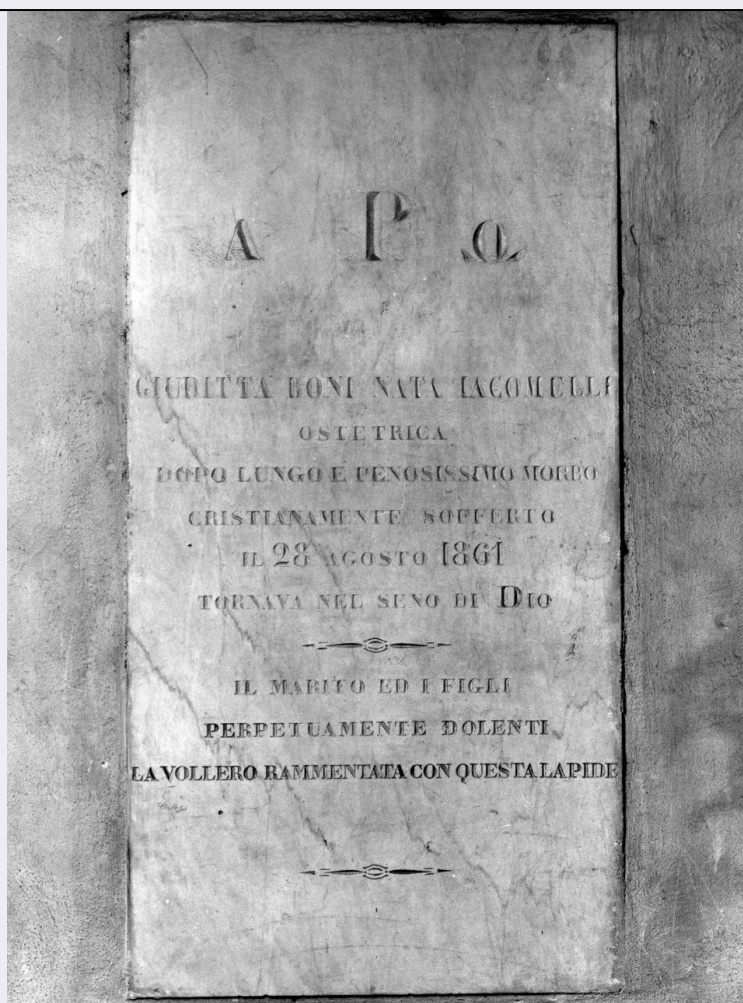 A P Ω
GIUDITTA BONI NATA IACOMELLI
OSTETRICA
DOPO LUNGO E PENOSISSIMO MORBO
CRISTIANAMENTE SOFFERTO
IL 28 AGOSTO 1861
TORNAVA NEL SENO DI DIO
IL MARITO ED I FIGLI
PERPETUAMENTE DOLENTI
LA VOLLERO RAMMENTATA CON QUESTA LAPIDE